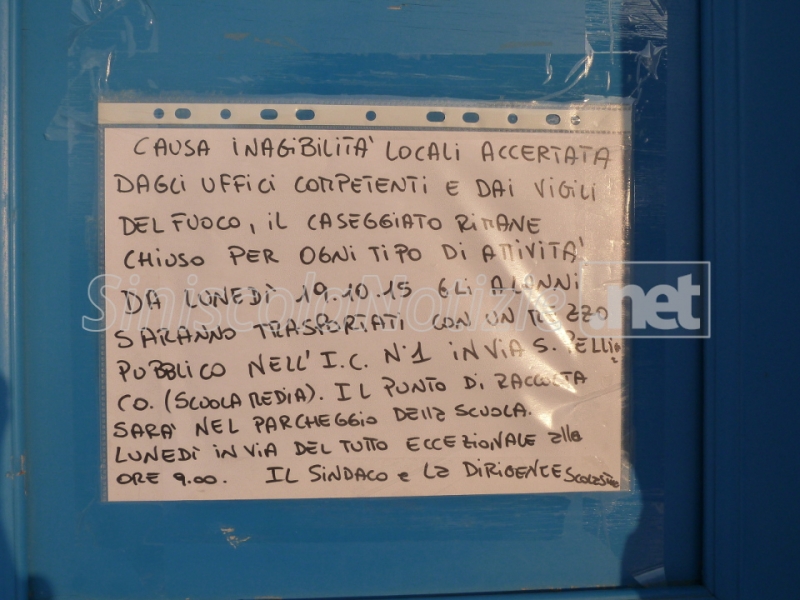 CAUSA INAGIBILITA' LOCALI ACCERTATA
DAGLI UFFICI COMPETENTI E DAI VIGILI
DEL FUOCO, IL CASEGGIATO RIMANE
CHIUSO PER OGNI TIPO DI ATTIVITA'
DA LUNEDÌ 19.10.15 GLI ALUNNI
SARANNO TRASPORTATI CON UN MEZZO
PUBBLICO NELL'I.C. N°1 IN VIA S. PELLI
CO. (SCUOLA MEDIA). IL PUNTO DI RACCOLTA
SARA' NEL PARCHEGGIO DELLA SCUOLA.
LUNEDÌ IN VIA DEL TUTTO ECCEZIONALE alla
ORE 9.00. IL SINDACO e LA DIRIGENTE SCOLASTICO
SiniscolaNotizie.net